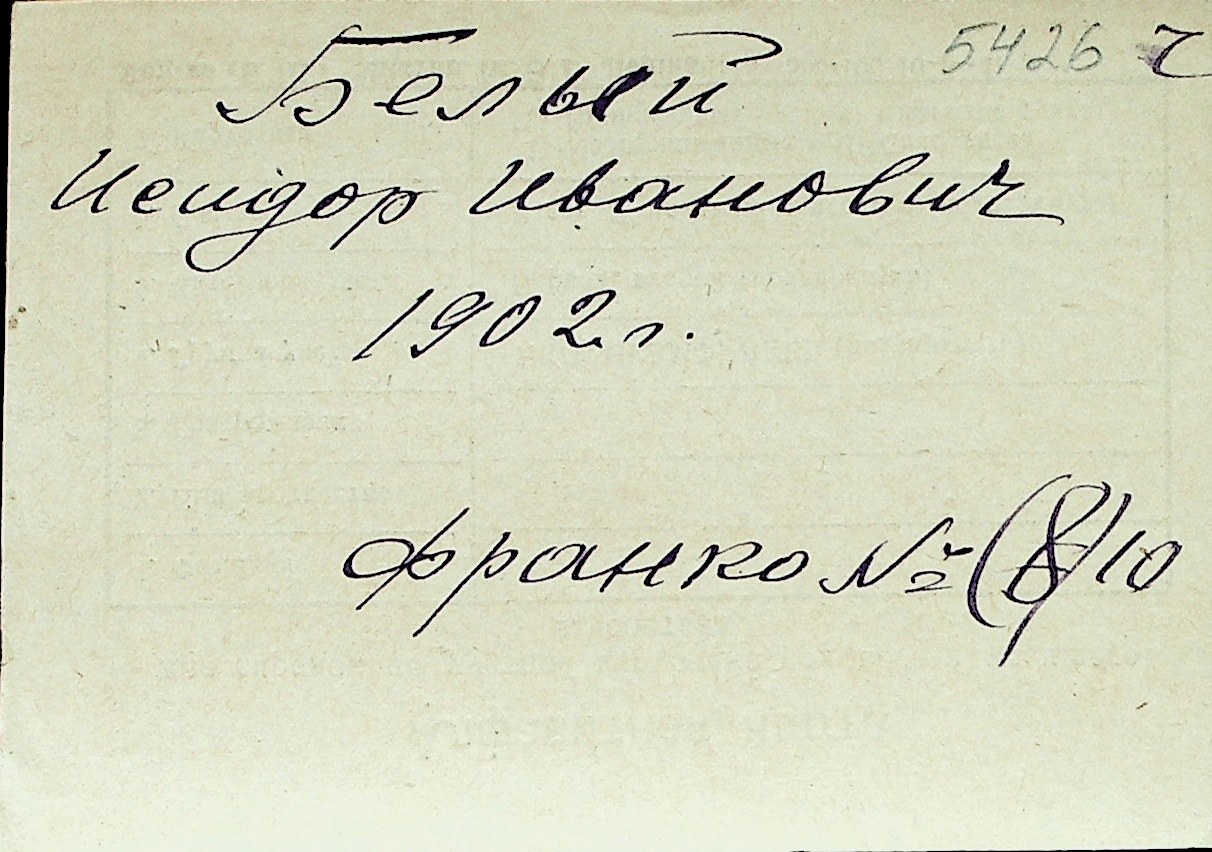 5426 ч
Белый
Исидор Иванович
1902 г.
Франко № (8) 10